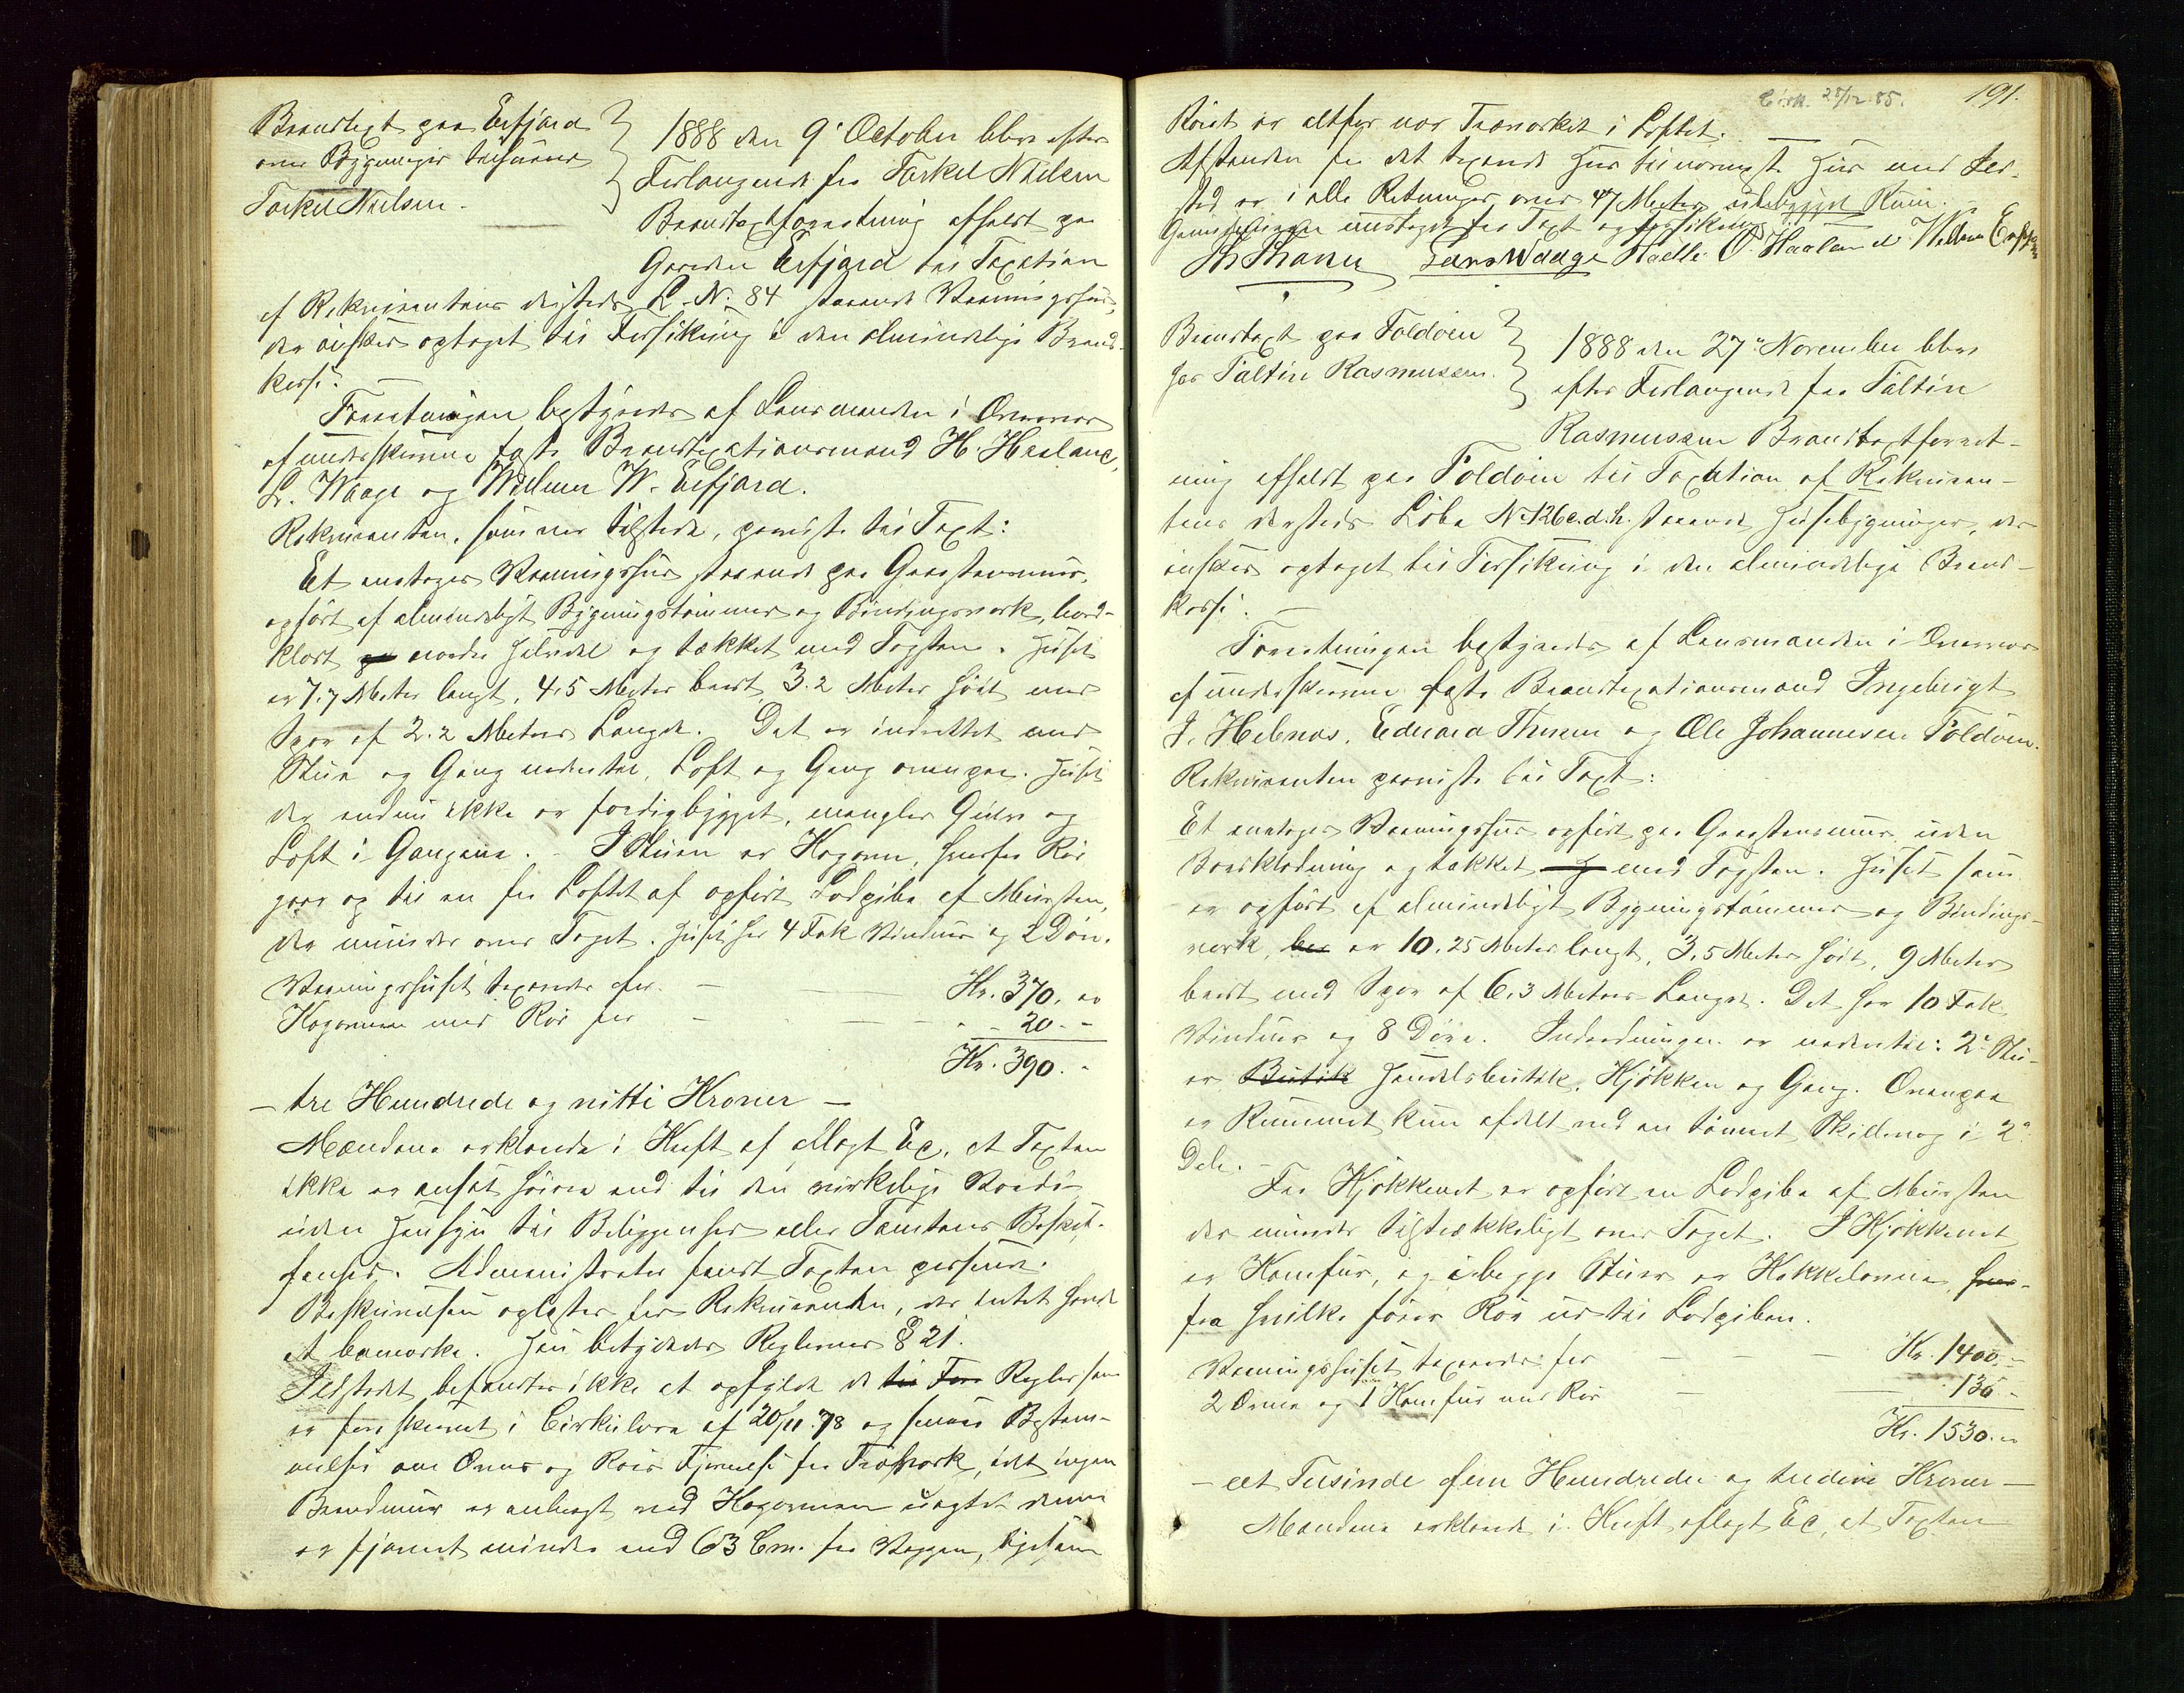 Brandtaxt paa Erfjord
over Bygninger tilhørende
Torkel Nielsen.
1888 den 9' October blev efter
Forlangende fra Torkel Nielsen
Brandtaxtforretning afholdt paa
Gaarden Erfjord til Taxation
af Rekvirentens dersteds L. No. 84 staaende Vaaningshus,
der ønskes optaget til Forsikring i den almindelige Brand-
kasse. —
Forretningen bestyredes af Lensmanden i Overvær
af underskrevne faste Brandtaxationsmænd H. Haaland,
L. Waage og Willum W. Erfjord.
Rekvirenten, som var tilstede, paaviste til Taxt:
Et etages Vaaningshus staaende paa Graastensmur,
opført af almindeligt Bygningstømmer og Bindingsværk, bord-
klædt paa nordre Halvdel og tækket med Tagsten. Huset
er 7.7 Meter langt, 4.5 Meter bredt, 3.2 Meter høit med
Spær af 2.2 Meters Længde. Det er indrettet med
Stue og Gang nedentil, Loft og Gang ovenpaa. Huset
der endnu ikke er færdigbygget, mangler Gulv og
Loft i Gangene. - I Stuen er Kogovn, hvorfra Rør
gaar op til en fra Loftet af opført Lodpibe af Mursten,
der munder over Taget. Huset har 4 Fak Vinduer og 2 Døre.
Vaaningshuset taxeredes for — — — Kr. 370. 00
Kogovnen med Rør for — — — " - 20 - -
Kr. 390. -
— tre Hundrede og nitti Kroner —
Mændene erklærede i Kraft af aflagt Ed, at Taxten
ikke er ansat høiere end til den virkelige Værdi
uden Hensyn til Beliggenhed eller Tomtens Beskaf-
fenhed. Administrator fandt Taxten passende.
Beskrivelsen oplæstes for Rekvirenten, der intet havde
at bemærke. Han betydedes Reglernes § 21.
Ildstedet befandtes ikke at opfylde de til For Regler som
er foreskrevet i Cirkulære af 20/11. 78 og senere Bestem-
melser om Ovnes og Rørs Fjernelse fra Træværk, idet ingen
Brandmur er anbragt ved Kogovnen uagtet denne
er fjernet mindre end 63 Cm. fra Væggen, ligesom
Cirk. 28/12. 85.
191.
Røret er altfor nær Træværket i Loftet. —
Afstanden fra det taxerede Hus til nærmeste Hus med Ild-
sted er i alle Retninger over 47 Meter ubebygget Rum. -
Lars Waage Hadle O Haaland Willum Erfjord
Brandtaxt paa Foldøen
hos Taltin Rasmussen.
1888 den 27' November blev
efter Forlangende fra Taltin
Rasmussen Brandtaxtforret-
ning afholdt paa Foldøen til Taxation af Rekviren-
tens dersteds Løbe No 126 c.d.h. staaende Husebygninger, der
ønskes optaget til Forsikring i den almindelige Brand-
kasse. —
Forretningen bestyredes af Lensmanden i Overvær
af underskrevne faste Brandtaxationsmænd Ingebrigt
I. Helnæs, Edvard Thuen og Ole Johannesen Foldøen.
Rekvirenten paaviste til Taxt:
Et etages Vaaningshus opført paa Graastensmur uden
Bordklædning og tækket H med Tagsten. Huset som
er opført af almindeligt Bygningstømmer og Bindings-
værk, har er 10.25 Meter langt, 3.5 Meter høit, 9 Meter
bredt med Spær af 6.3 Meters Længde. Det har 10 Fak
Vinduer og 8 Døre. Indredningen er nedentil: 2' Stu-
er Butik Handelsbutik, Kjøkken og Gang. Ovenpaa
er Rummet kun afdelt ved en tømret Skillevæg i 2'
Dele. -
Fra Kjøkkenet er opført en Lodpibe af Mursten
der munder tilstrækkeligt over Taget. I Kjøkkenet
er Komfur, og i begge Stuer er Kakkelovne, hvor-
fra hvilke fører Rør ud til Lodpiben.
Vaaningshuset taxeredes for — — — Kr. 1400. -
2 Ovne og 1 Komfur med Rør — — 130 -
Kr. 1530. 00
— eet Tusinde fem Hundrede og tredive Kroner —
Mændene erklærede i Kraft aflagt Ed, at Taxten